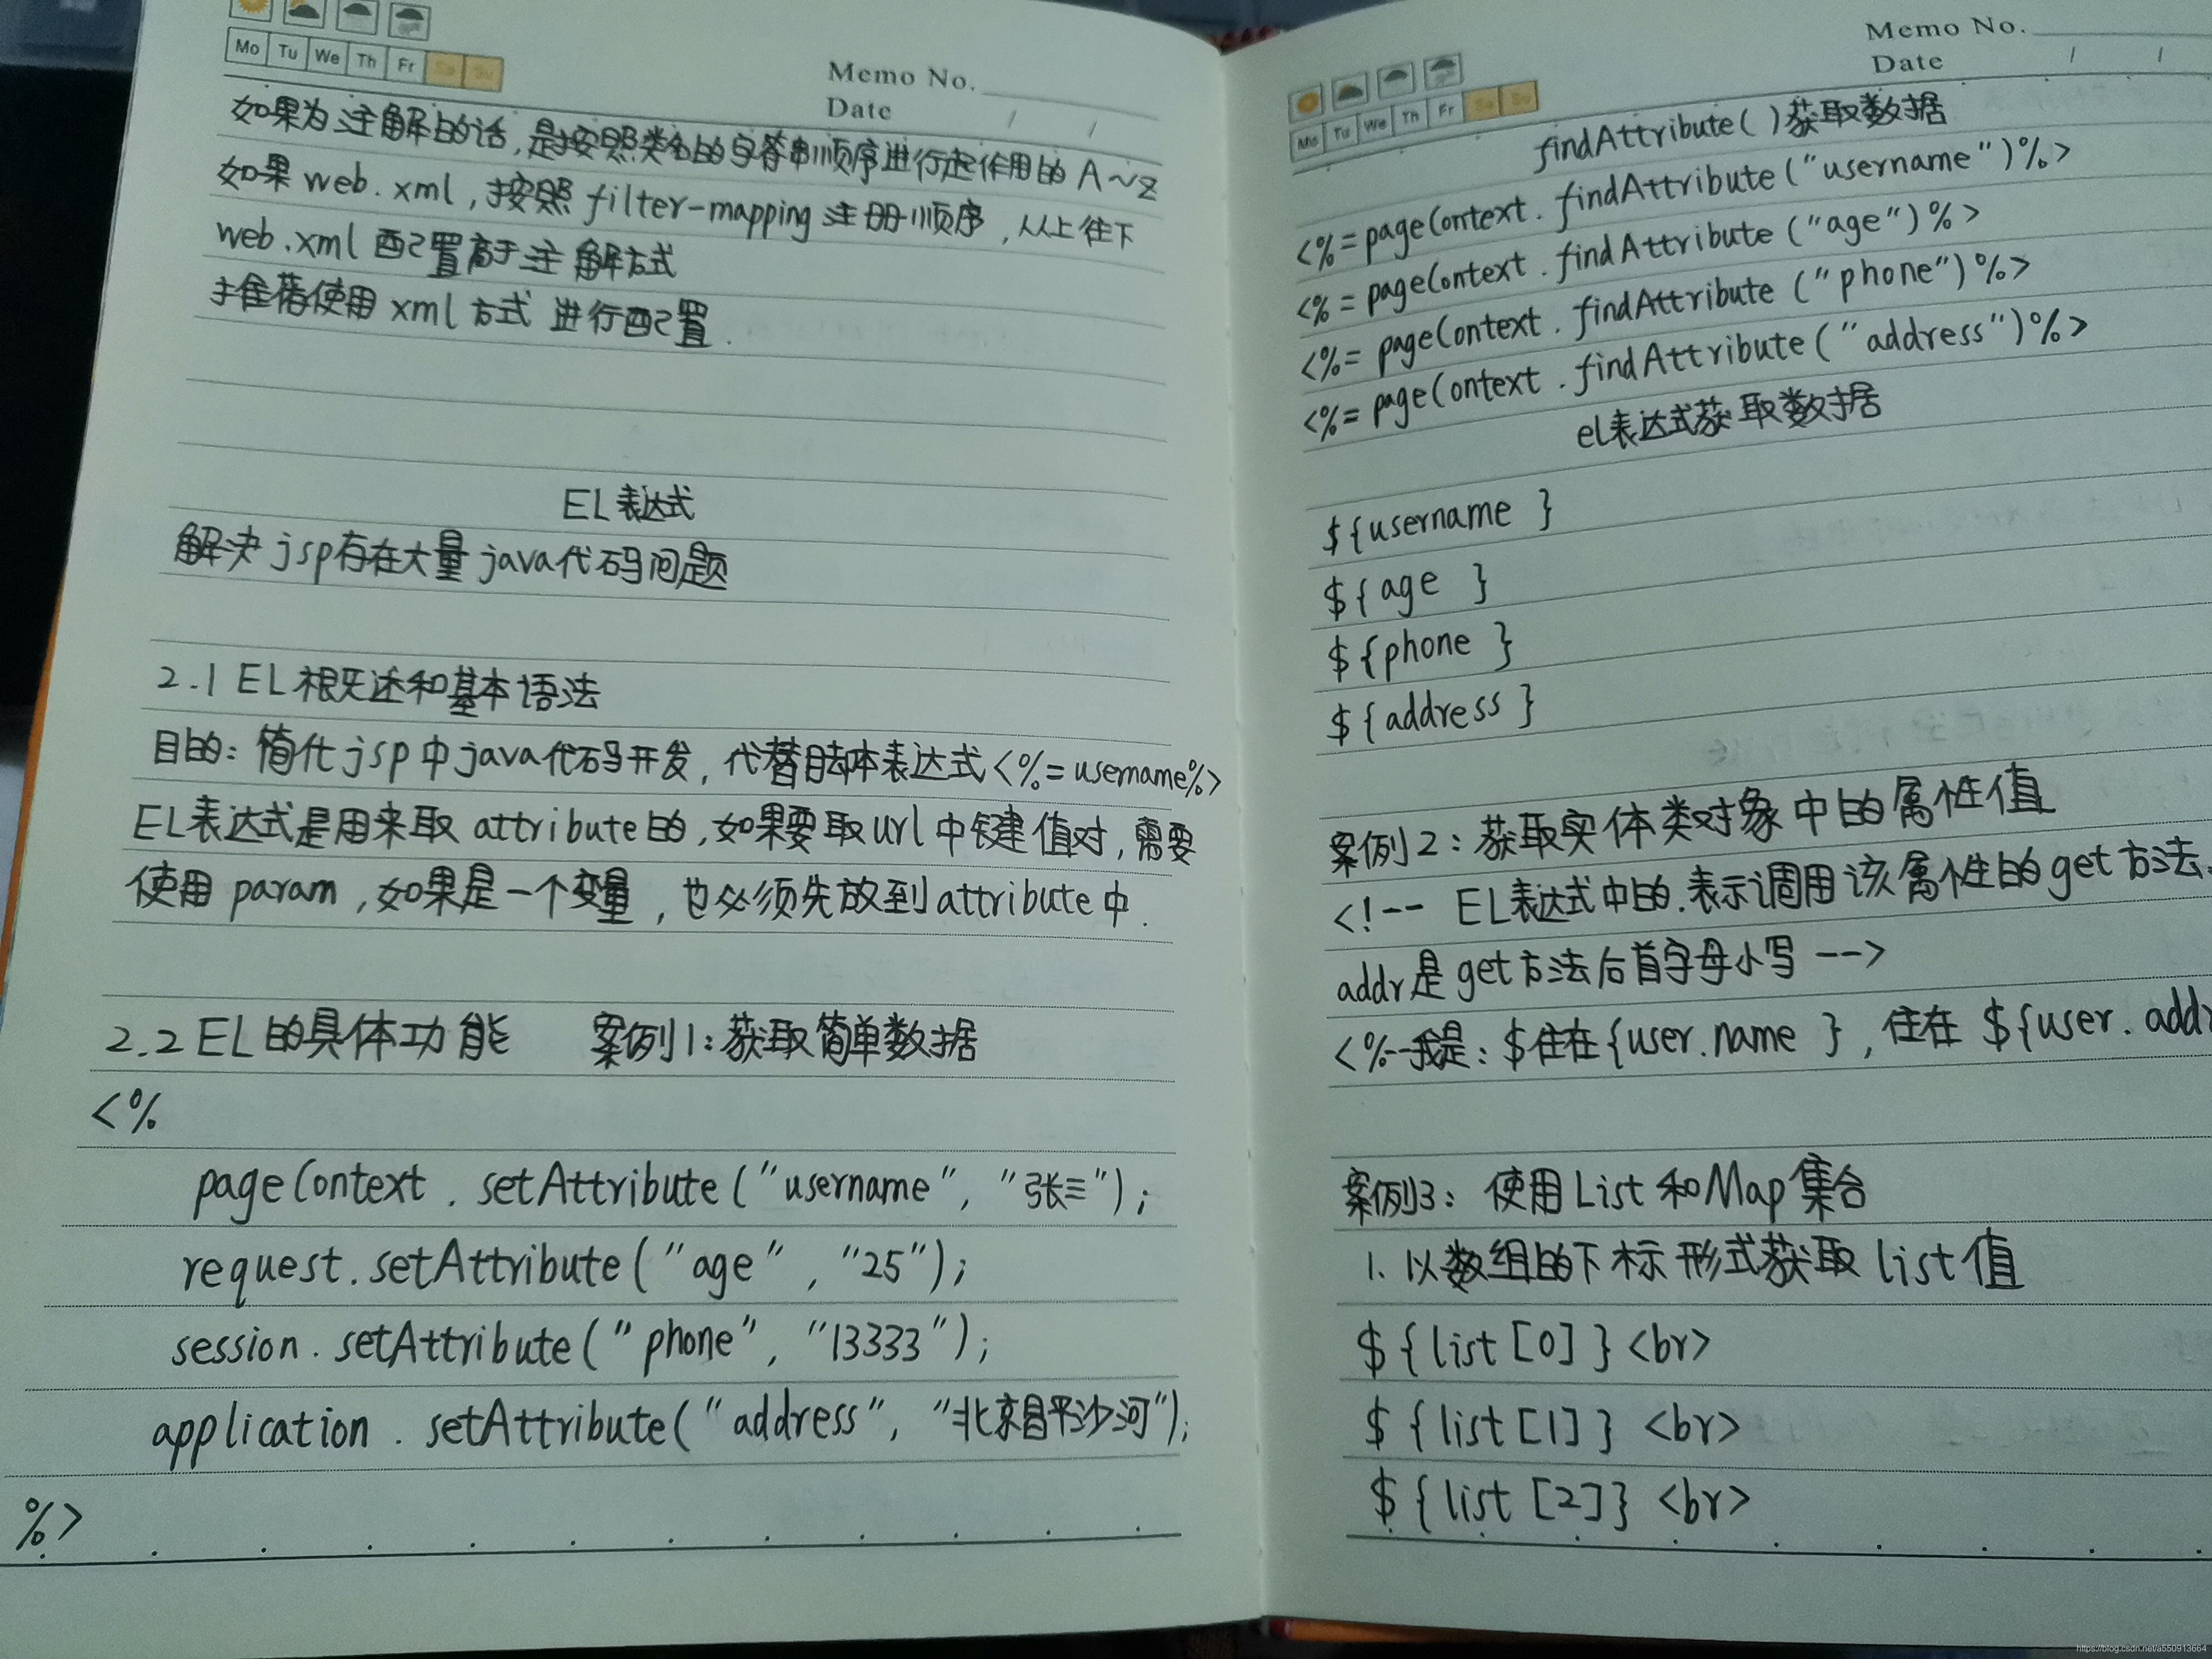 Mo Tu We Th Fr Sa Su
Memo No.
Date / /
如果为注解的话,是按照类名的字符串顺序进行起作用的 A~Z
如果 web.xml,按照 filter-mapping 注册顺序,从上往下
web.xml 配置高于注解方式
推荐使用 xml 方式 进行配置.
EL表达式
解决 jsp存在大量 java代码问题
2.1 EL 概述和基本语法
目的: 简化 jsp 中 java代码开发, 代替脚本表达式 <%= username%>
EL表达式是用来取 attribute的,如果要取 url 中键值对,需要
使用 param,如果是一个变量,也必须先放到 attribute 中.
2.2 EL 的具体功能 案例1:获取简单数据
<%
pageContext . setAttribute ("username", "张三");
request.setAttribute ("age", "25");
session. setAttribute ("phone", "13333");
application . setAttribute("address", "北京昌平沙河");
%>
Memo No.
Date / /
Mo Tu We Th Fr Sa Su
findAttribute( )获取数据
<%= pageContext. findAttribute ("username")%>
<%= pageContext . findAttribute ("age")%>
<%= pageContext . findAttribute ("phone")%>
<%= pageContext . findAttribute ("address")%>
el表达式获取数据
${username }
${age }
${phone }
${address }
案例2: 获取实体类对象中的属性值
<!-- EL表达式中的.表示调用该属性的get方法.
addr是get方法后首字母小写 -->
<%--我是: $住在{user.name }, 住在 ${user.addr
案例3: 使用 List 和Map 集合
1. 以数组的下标形式获取 list 值
${list [0] } <br>
${list [1] } <br>
${list [2]} <br>
https://blog.csdn.net/a550913664